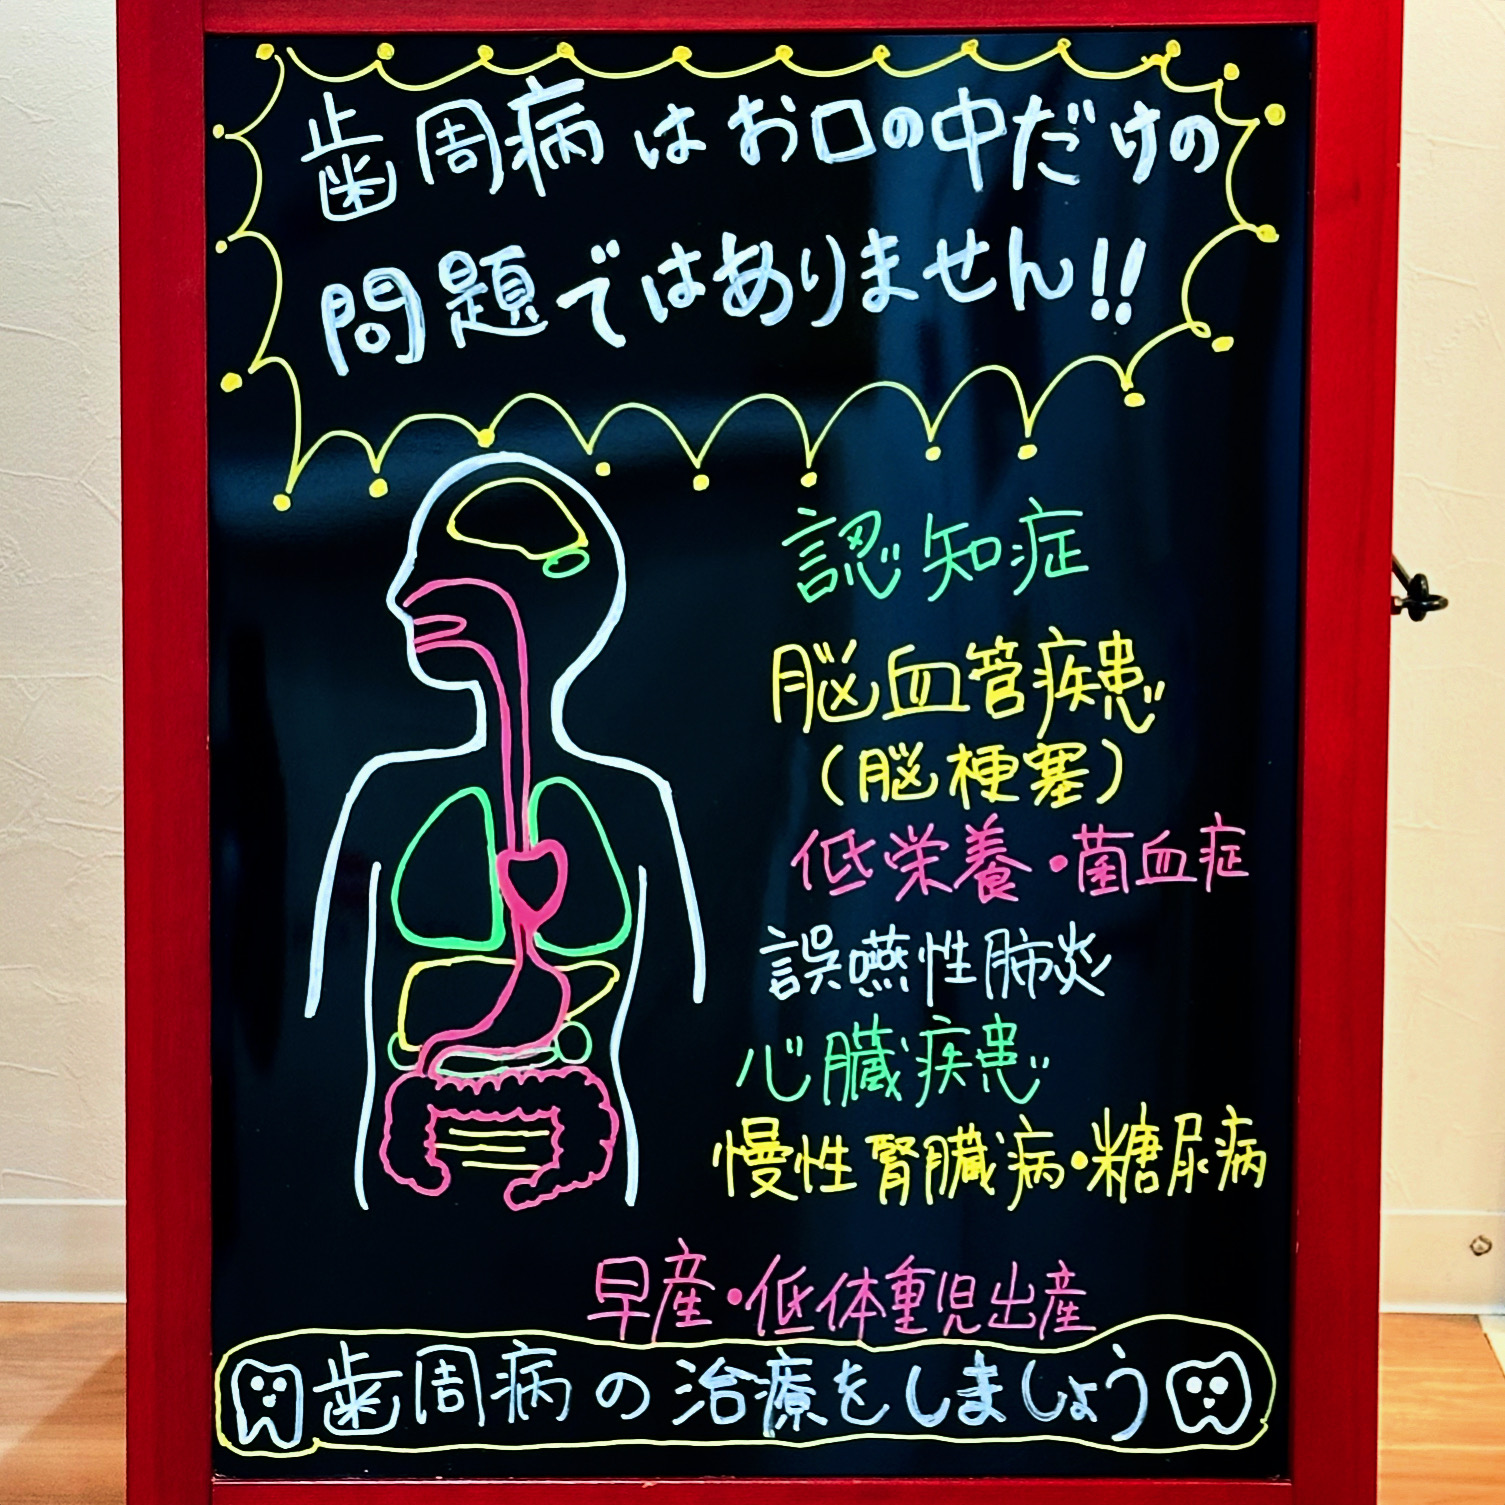 歯周病はお口の中だけの
問題ではありません!!
認知症
脳血管疾患
(脳梗塞)
低栄養・菌血症
誤嚥性肺炎
心臓疾患
慢性腎臓病・糖尿病
早産・低体重児出産
歯周病の治療をしましょう